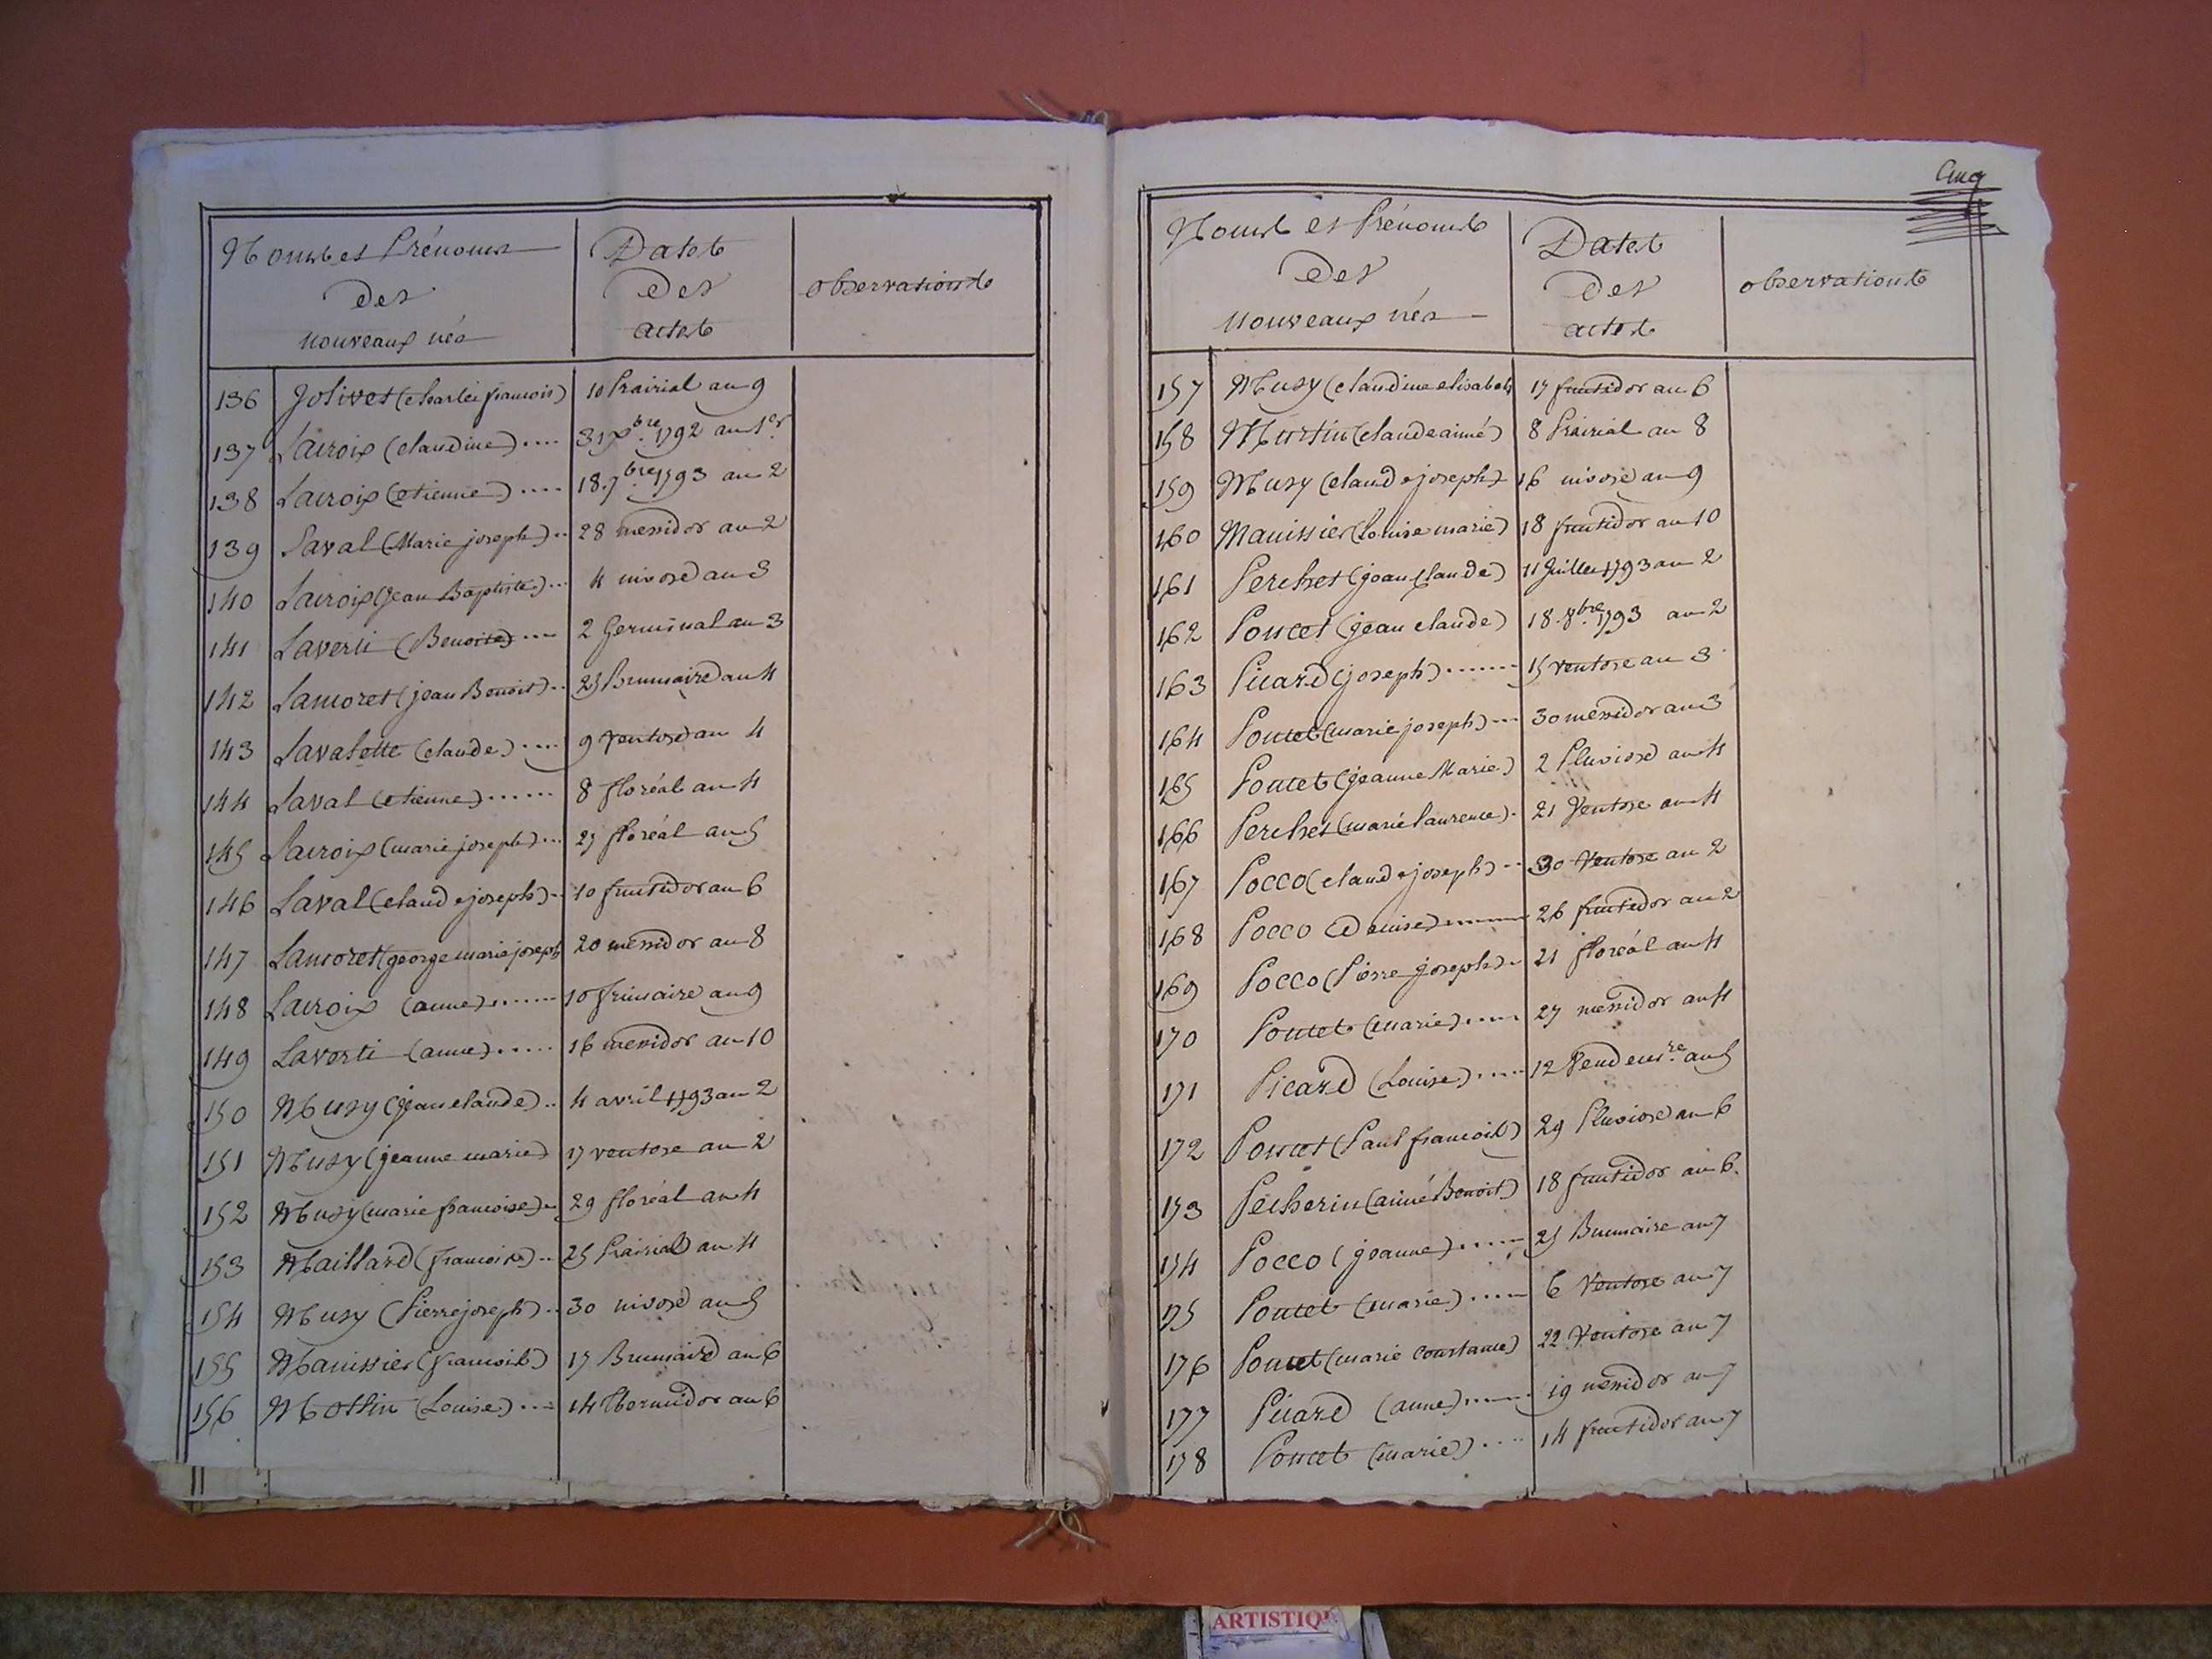 Noms et Prénoms
des
nouveaux nés
Dates
des
actes
observations
136 Jolivet (charles francois) 10 Prairial an 9
137 Lacroix (claudine) .... 31 Xbre. 1792 an 1er
138 Lacroix (etienne) .... 18. 7bre 1793 an 2
139 Laval (Marie joseph) .. 28 messidor an 2
140 Lacroix (jean Baptiste) ... 4 nivose an 3
141 Laverti (Benoite) .... 2 Germinal an 3
142 Lamoret (jean Benoit) .. 25 Brumaire an 4
143 Lavalette (claude) .... 9 Ventose an 4
144 Laval (etienne) ...... 8 floréal an 4
145 Lacroix (marie joseph) ... 25 floréal an 5
146 Laval (claude joseph) .. 10 fructidor an 6
147 Lamoret (george marie joseph 20 messidor an 8
148 Lacroix (anne) ....... 10 frimaire an 9
149 Laverti (anne) ..... 16 messidor an 10
150 Musy (jean claude) .. 4 avril 1793 an 2
151 Musy (jeanne marie) 17 ventose an 2
152 Musy (marie francoise) .. 29 floréal an 4
153 Maillard (francoise) .. 25 Prairial an 4
154 Musy (Pierre joseph) .. 30 nivose an 5
155 Manissier (francois) 17 Brumaire an 6
156 Mottin (Louise) ... 14 thermidor an 6
Cinq
Noms et Prénoms
des
nouveaux nés
Dates
des
actes
observations
157 Musy (claudine elisabeth 17 fructidor an 6
158 Murtin (claude aimé) 8 Prairial an 8
159 Musy (claude joseph) 16 nivose an 9
160 Manissier (Louise marie) 18 fructidor an 10
161 Perchet (jean claude) 11 Juillet 1793 an 2
162 Poncet (jean claude) 18. 8bre. 1793 an 2
163 Picard (joseph) ....... 15 ventose an 3
164 Poncet (marie joseph) ... 30 messidor an 3
165 Poncet (jeanne Marie) 2 Pluviose an 4
166 Perchet (marie laurence) . 21 Ventose an 4
167 Pocco (claude joseph) .. 30 Ventose an 2
168 Pocco (Denise) ....... 26 fructidor an 2
169 Pocco (Pierre joseph) .. 21 floréal an 4
170 Poncet (marie) ..... 27 messidor an 4
171 Picard (Louise) ..... 12 Vendemre. an 5
172 Poncet (Paul francois) 29 Pluviose an 6
173 Pecherin (aimé Benoit) 18 fructidor an 6.
174 Pocco (jeanne) ...... 25 Brumaire an 7
175 Poncet (marie) ..... 6 Ventose an 7
176 Poncet (marie constance) 22 Ventose an 7
177 Picard (anne) ...... 19 messidor an 7
178 Poncet (marie) .... 14 fructidor an 7
ARTISTIQU